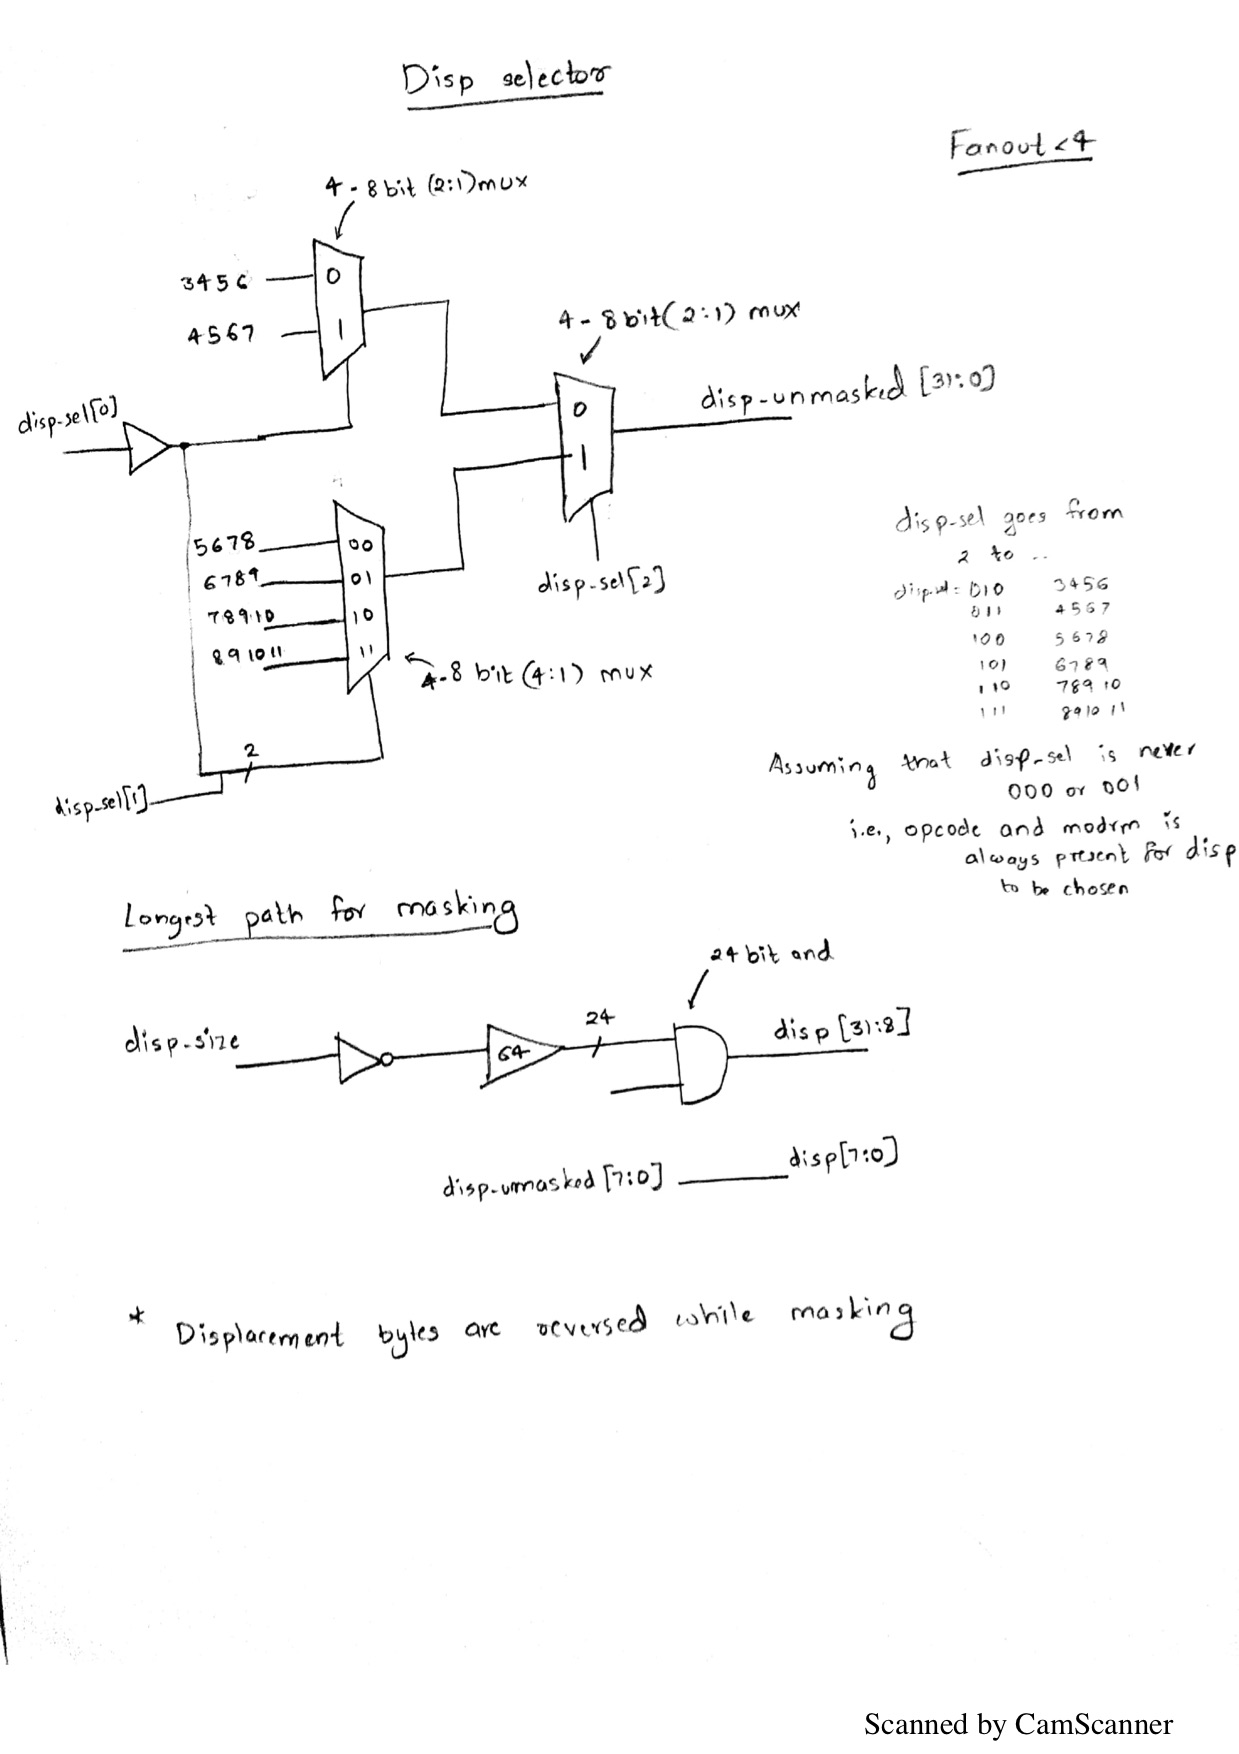 Disp selector
Fanout < 4
4 - 8 bit (2:1) mux
3456
0
4567
1
4 - 8 bit (2:1) mux
disp-sel[0]
0
1
disp-unmasked [31:0]
disp-sel[2]
5678
00
6789
01
78910
10
891011
11
4-8 bit (4:1) mux
2
disp-sel[1]
disp-sel goes from
2 to ..
disp-sel = 010 3456
011 4567
100 5678
101 6789
110 789 10
111 8910 11
Assuming that disp-sel is never
000 or 001
i.e., opcode and modrm is
always present for disp
to be chosen
Longest path for masking
24 bit and
disp-size
64
24
disp [31:8]
disp-unmasked [7:0]
disp[7:0]
* Displacement bytes are reversed while masking
Scanned by CamScanner